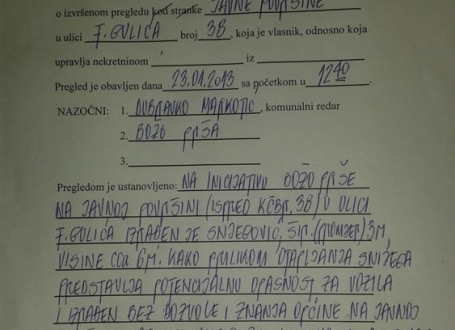 o izvršenom pregledu kod stranke JAVNE POVRŠINE
u ulici F. GULIĆA broj 38, koja je vlasnik, odnosno koja
upravlja nekretninom iz
Pregled je obavljen dana 23.01.2013 sa početkom u 12 40
NAZOČNI: 1. DUBRAVKO MARKOTIĆ, komunalni redar
2. BOŽO PRŠA
3.
Pregledom je ustanovljeno: NA INICIJATIVU BOŽO PRŠE
NA JAVNOJ POVRŠINI (ISPRED KĆBR. 38) U ULICI
F. GULIĆA IZRAĐEN JE SNJEGOVIĆ, ŠIR. (PROMJER) 3M,
VISINE CCA 6M. KAKO PRILIKOM OTAPLJANJA SNIJEGA
PREDSTAVLJA POTENCIJALNU OPASNOST ZA VOZILA
I IZRAĐEN BEZ DOZVOLE I ZNANJA OPĆINE NA JAVNOJ